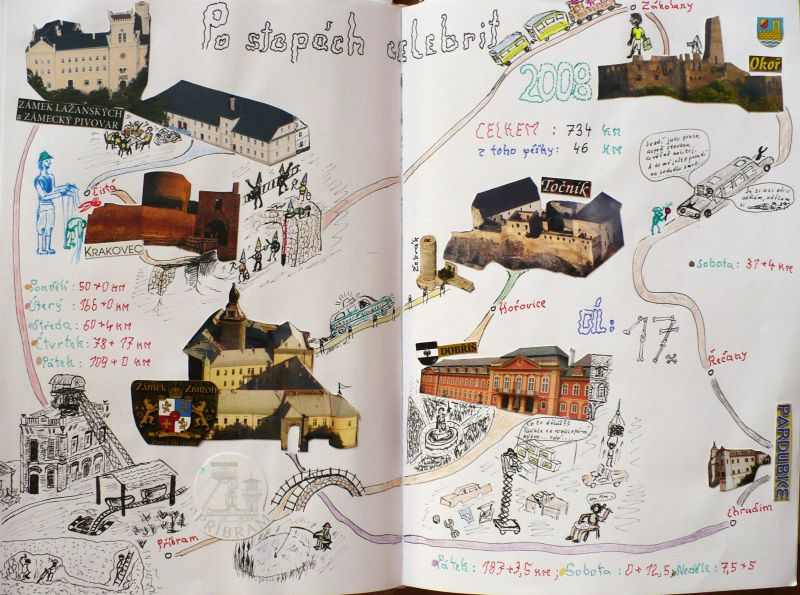 Po stopách celebrit
2008
CELKEM : 734 km
z toho pěšky: 46 km
Zákolany
Okoř
ZÁMEK LAŽANSKÝCH
a ZÁMECKÝ PIVOVAR
Čistá
KRAKOVEC
Pondělí: 50+0 km
Úterý: 166+0 km
Středa: 60+4 km
Čtvrtek: 78+17 km
Pátek: 109+0 km
ZÁMEK ZBIROH
PŘÍBRAM
Příbram
Točník
Žebrák
Hořovice
DOBŘÍŠ
DÍL: 17.
Sobota: 31+4 km
Řečany
PARDUBICE
Chrudim
Pátek: 187+3,5 km; Sobota: 0+12,5; Neděle: 7,5+5